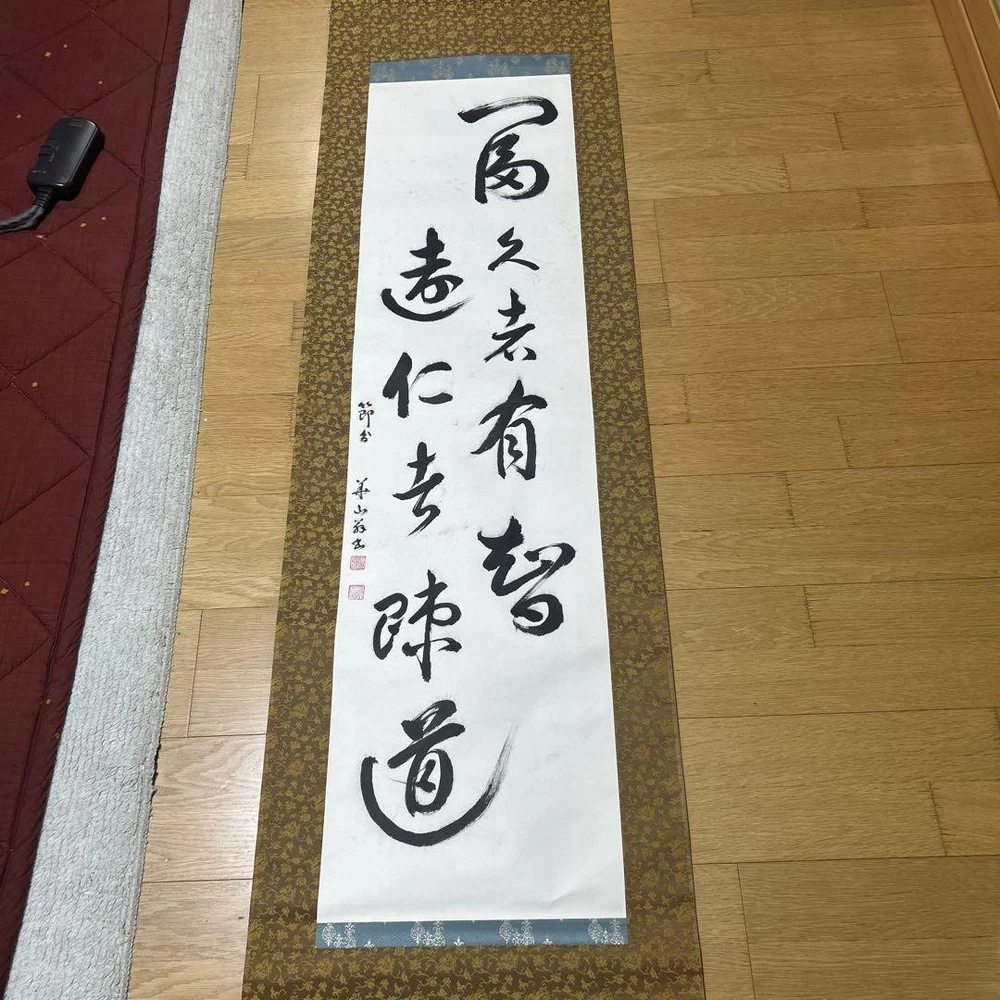 冨久者有智
遠仁者疎道
節分　華山翁書